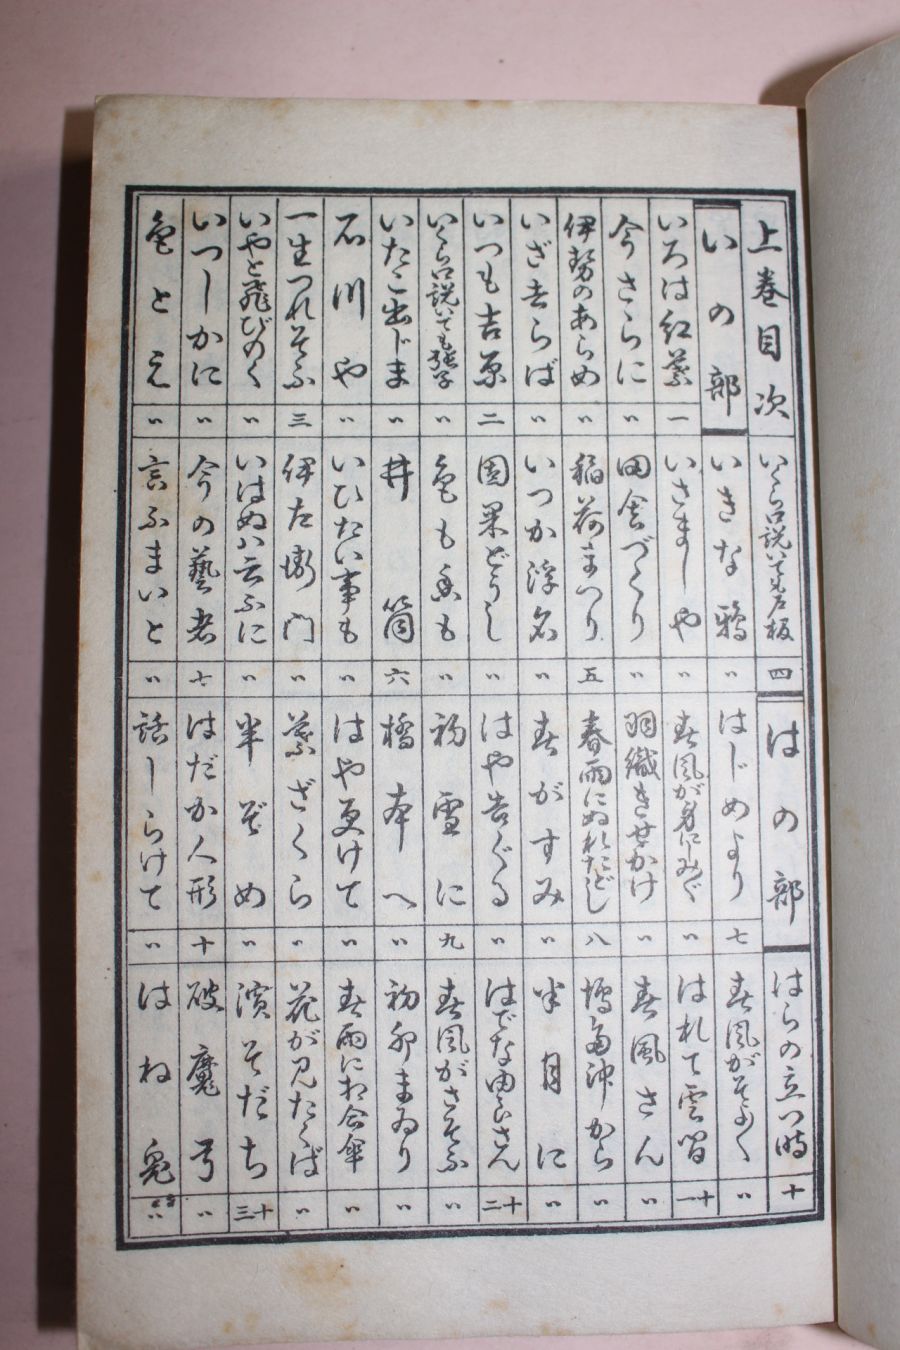 上巻目次
いの部
いろは紅葉 一
今さらに 〃
伊勢のあらめ 〃
いざさらば 〃
いつも吉原 二
いくら口説いても獅子 〃
いたこ出じま 〃
石川や 〃
一生つれそふ 三
いやと飛びのく 〃
いつしかに 〃
色とえ 〃
いくら口説いても戸板 四
いきな鴉 〃
いさましや 〃
田舎づくり 〃
稲荷まつり 五
いつか浮名 〃
因果どうし 〃
色も香も 〃
井筒 六
いひたい事も 〃
伊左衛門 〃
いはぬハ云ふに 〃
今の藝者 七
言ふまいと 〃
はの部
はじめより 七
春風が身にみぐ 〃
羽織きせかけ 〃
春雨にぬれたどし 八
春がすみ 〃
はや告ぐる 〃
初雪に 九
橋本へ 〃
はや更けて 〃
葉ざくら 〃
半ぞめ 〃
はだか人形 十
話しらけて 〃
はらの立つ時 十
春風がそよ〱 〃
はれて雲間 十一
春風さん 〃
鳩ぽ沖から 〃
半月に 〃
はでな由良さん 十二
春風がさそふ 〃
初卯まゐり 〃
春雨に相合傘 〃
花が見たくば 〃
濱そだち 十三
破魔弓 〃
はね兎 〃